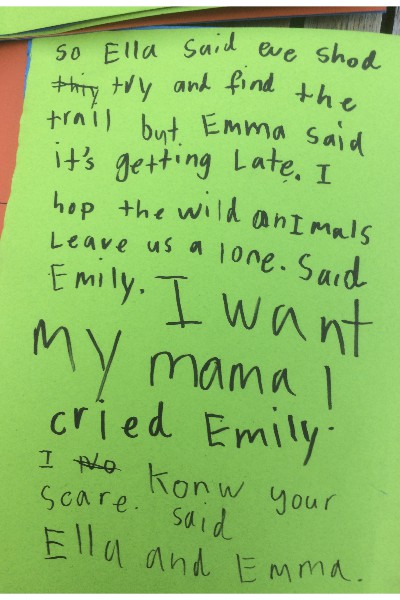 So Ella said eve shod
thiy try and find the
trall but Emma said
it's getting Late. I
hop the wild anImals
Leave us a lone. Said
Emily. I want
My mama!
cried Emily.
I No Konw your
scare. said
Ella and Emma.